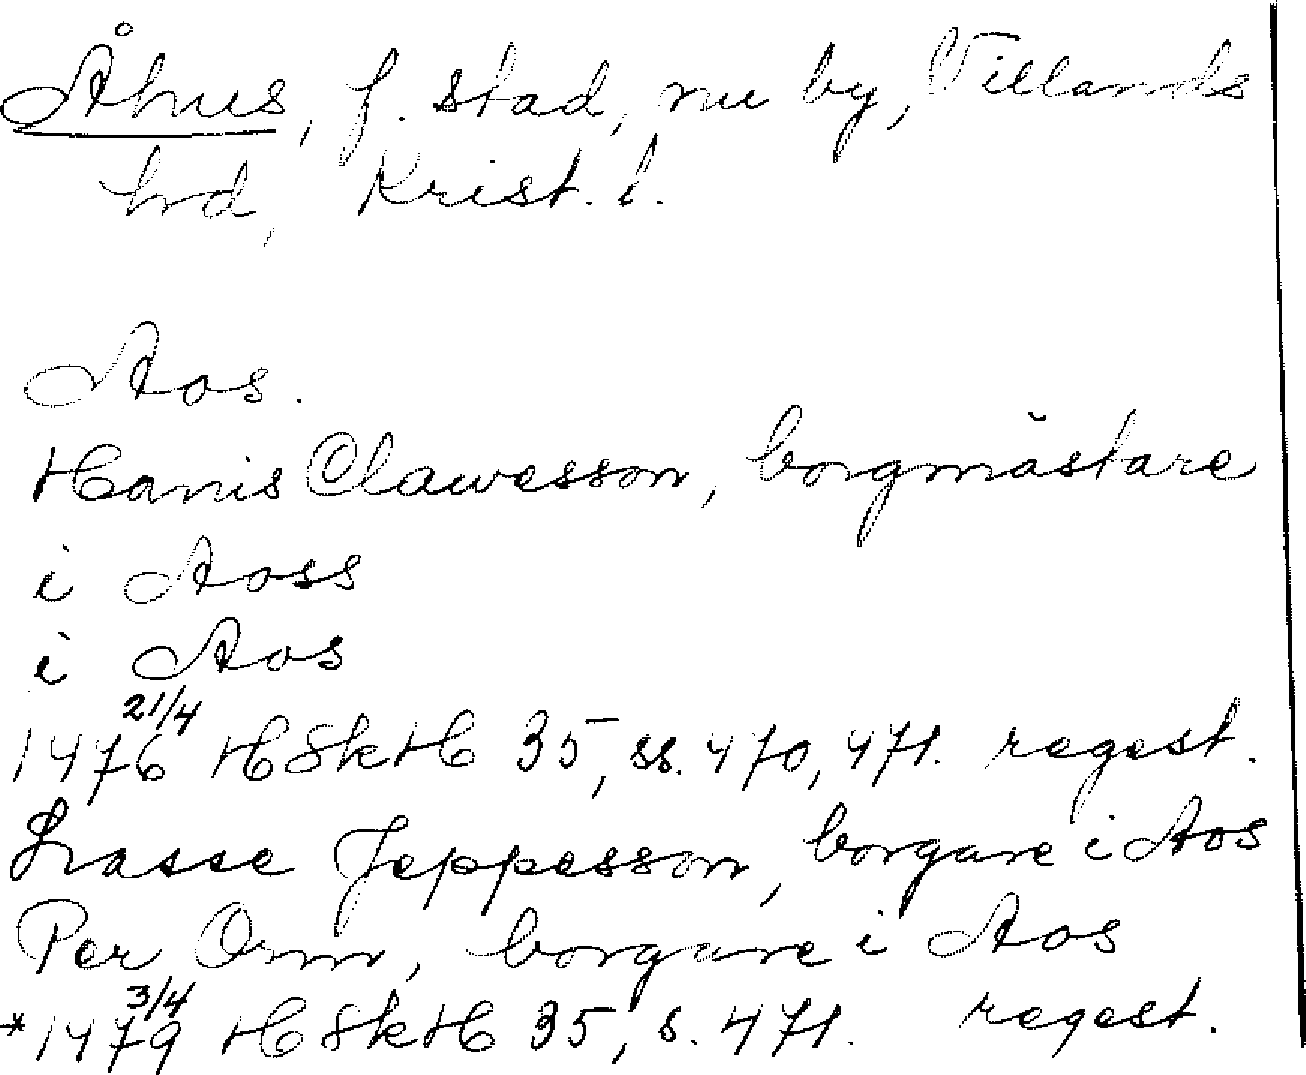 Åhus, f. stad, nu by, Villands
hrd, Krist. l.
Aos.
Hanis Clawesson, borgmästare
i Aoss
i Aos
1476 21/4 HSkH 35, ss. 470, 471. regest.
Lrasse Jeppesson, borgare i Aos
Per Orm, borgare i Aos
*1479 3/4 HSkH 35, s. 471. regest.